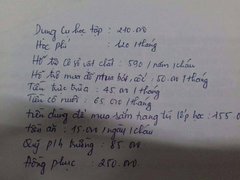 Dụng cụ học tập : 240.000
Học phí : 120 / tháng
Hỗ trợ cơ sở vật chất : 590 / năm / cháu
Hỗ trợ mua đồ phục bán, cốc : 50.000 / tháng
Tiền trực trưa : 45.000 / tháng
Tiền cô nuôi : 65.000 / tháng
tiền dùng để mua sắm trang trí lớp học : 155.000
tiền ăn : 15.000 / ngày / cháu
Quỹ phụ trường : 85.000
Đồng phục : 250.000